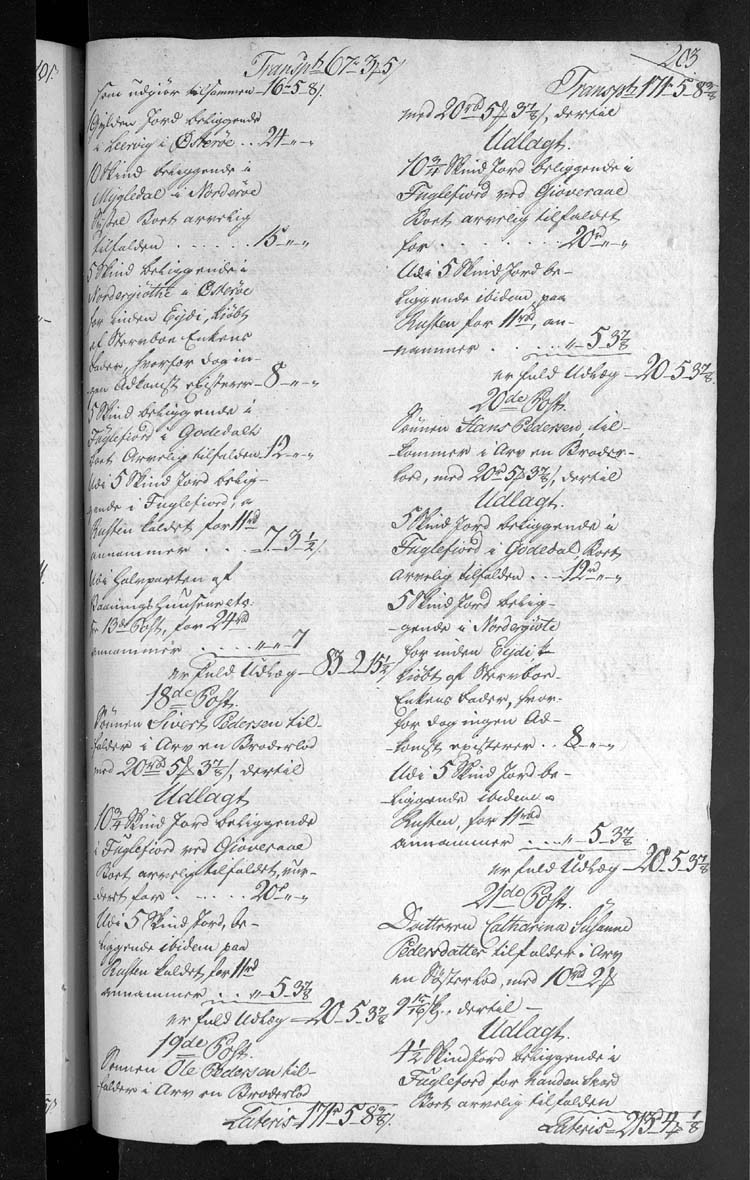 203
Transpt 67 - 3 - 5
som udgiør tilsammen - 16 - 5 - 8
Gylden Jord beliggende
i Leervig i Østerøe .. 24 - " - "
10 Skind beliggende i
Mygledal i Norderøe
Syssel Boet arvelig
tilfalden . . . . . . 15 - " - "
5 Skind beliggende i
Nordergiøthe i Østerøe
for inden Eydi, kiøbt
af Sterboe Enkens
Fader, hvorfor dog in-
gen Adkomst existerer - 8 - " - "
5 Skind beliggende i
Fuglefiord i Godedalt
Boet Arvelig tilfalden 12 - " - "
Udi 5 Skind Jord belig-
gende i Fuglefiord, 
Rusten kaldet for 11 rd
annammer . . . 7 - 3 1/2
Udi Halvparten af
Vaanings Huusene etc:
13de Post, for 24 rd
annammer . . . . " - " - 7
er fuld Udlæg - 83 - 2 - 15 1/2
18de Post.
Sønnen Sivert Pedersen til-
falder i Arv en Broderlod
med 20 rd 5 3 7/8, dertil
Udlagt
10 3/4 Skind Jord beliggende
i Fuglefiord ved Giøveraae
Boet arvelig tilfaldet, vur-
deret for . . . . . 20 - " - "
Udi 5 Skind Jord, be-
liggende ibidem paa
Rusten kaldet for 11 rd
annammer . . . " - 5 - 3 7/8
er fuld Udlæg - 20 - 5 - 3 7/8
19de Post.
Sønnen Ole Pedersen til-
falder i Arv en Broderlod
Lateris - 171 - 5 - 8 3/8
Transpt 171 - 5 - 8 3/8
med 20 rd 5 3 7/8, dertil
Udlagt.
10 3/4 Skind Jord beliggende i
Fuglefiord ved Giøveraae
Boet arvelig tilfaldet
for . . . . . . . 20 - " - "
Udi 5 Skind Jord be-
liggende ibidem paa
Rusten for 11 rd, an-
nammer . . . " - 5 - 3 7/8
er fuld Udlæg - 20 - 5 - 3 7/8
20de Post.
Sønnen Hans Pedersen til-
kommer i Arv en Broder-
lod, med 20 rd 5 3 7/8, dertil
Udlagt.
5 Skind Jord beliggende i
Fuglefiord i Godedal, Boet
arvelig tilfalden . . . 12 - " - "
5 Skind Jord belig-
gende i Nordergiote
for inden Eydi
kiøbt af Stervboe
Enkens Fader, hvor-
for dog ingen Ad-
komst existerer . . 8 - " - "
Udi 5 Skind Jord be-
liggende ibidem
Rusten, for 11 rd
annammer . . . . " - 5 - 3 7/8
er fuld Udlæg - 20 - 5 - 3 7/8
21de Post.
Datteren Catharina Susanne
Pedersdatter tilfalder i Arv
en Søsterlod, med 10 rd 2
9 15/16 ß., dertil -
Udlagt.
4 1/2 Skind Jord beliggende i
Fuglefiord for
Boet arvelig tilfalden
Lateris - 213 - 4 - 1/8